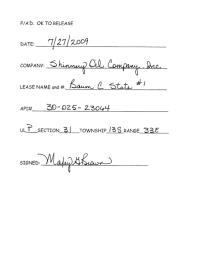 P/A'D. OK TO RELEASE
DATE: 7/27/2009
COMPANY: Skinney Oil Company, Inc.
LEASE NAME and #: Baum C State #1
API# 30-025-23044
UL P SECTION 31 TOWNSHIP 13S RANGE 33E
SIGNED: Brown